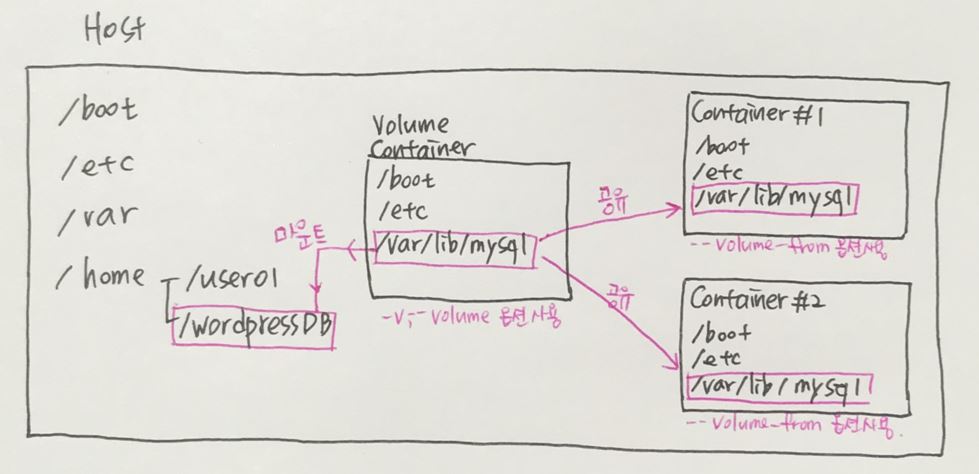 Host
/boot
/etc
/var
/home
/user01
/wordpressDB
마운트
Volume
Container
/boot
/etc
/var/lib/mysql
-v, -- volume 옵션사용
공유
공유
Container #1
/boot
/etc
/var/lib/mysql
--volume-from 옵션사용
Container #2
/boot
/etc
/var/lib/mysql
--volume-from 옵션사용.